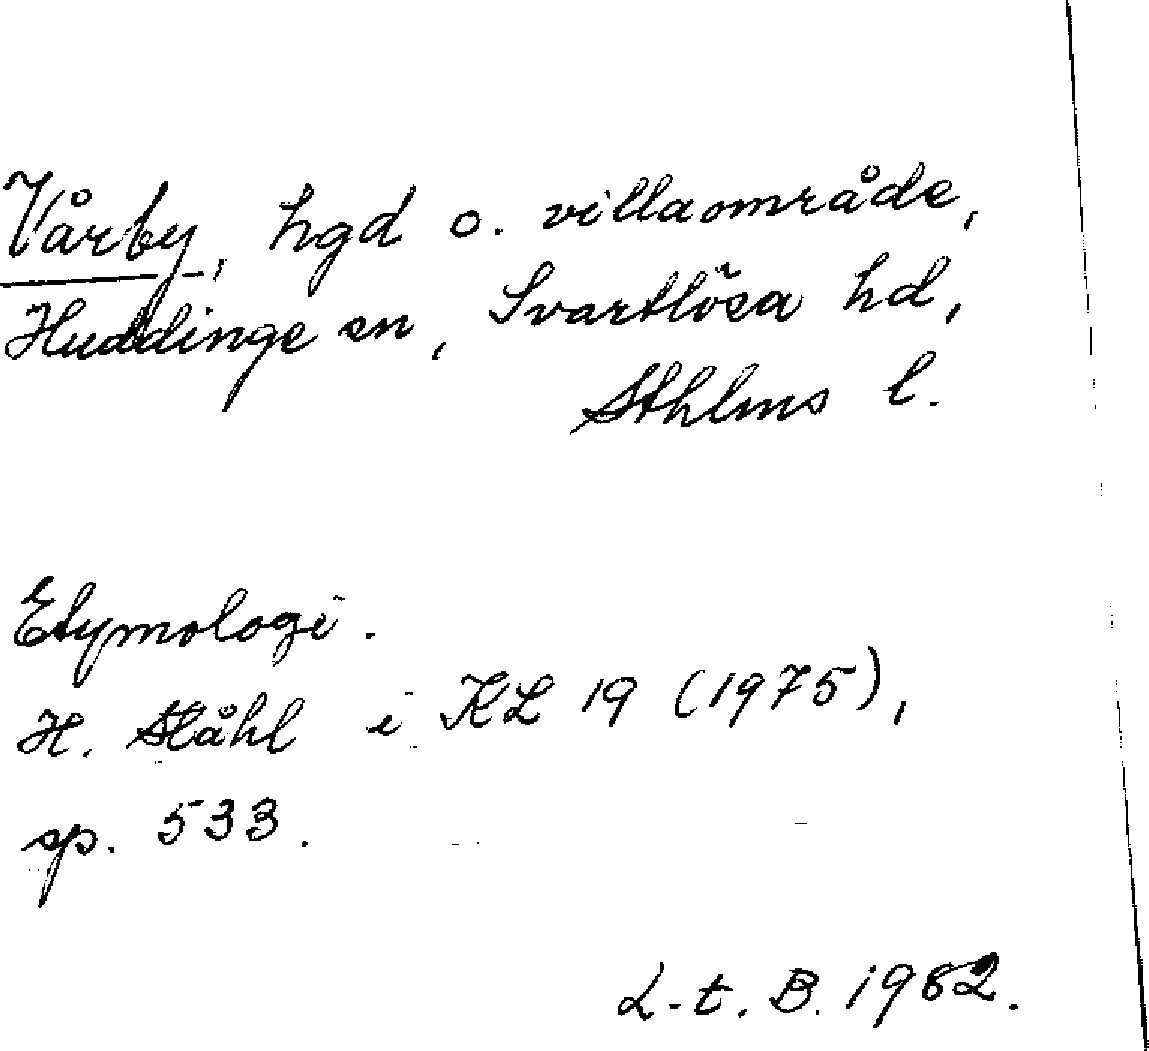 Vårby, hgd o. villaområde,
Huddinge sn, Svartlösa hd,
Sthlms l.
Etymologi.
H. Ståhl i KL 19 (1975),
sp. 533.
L.t.B. 1982.